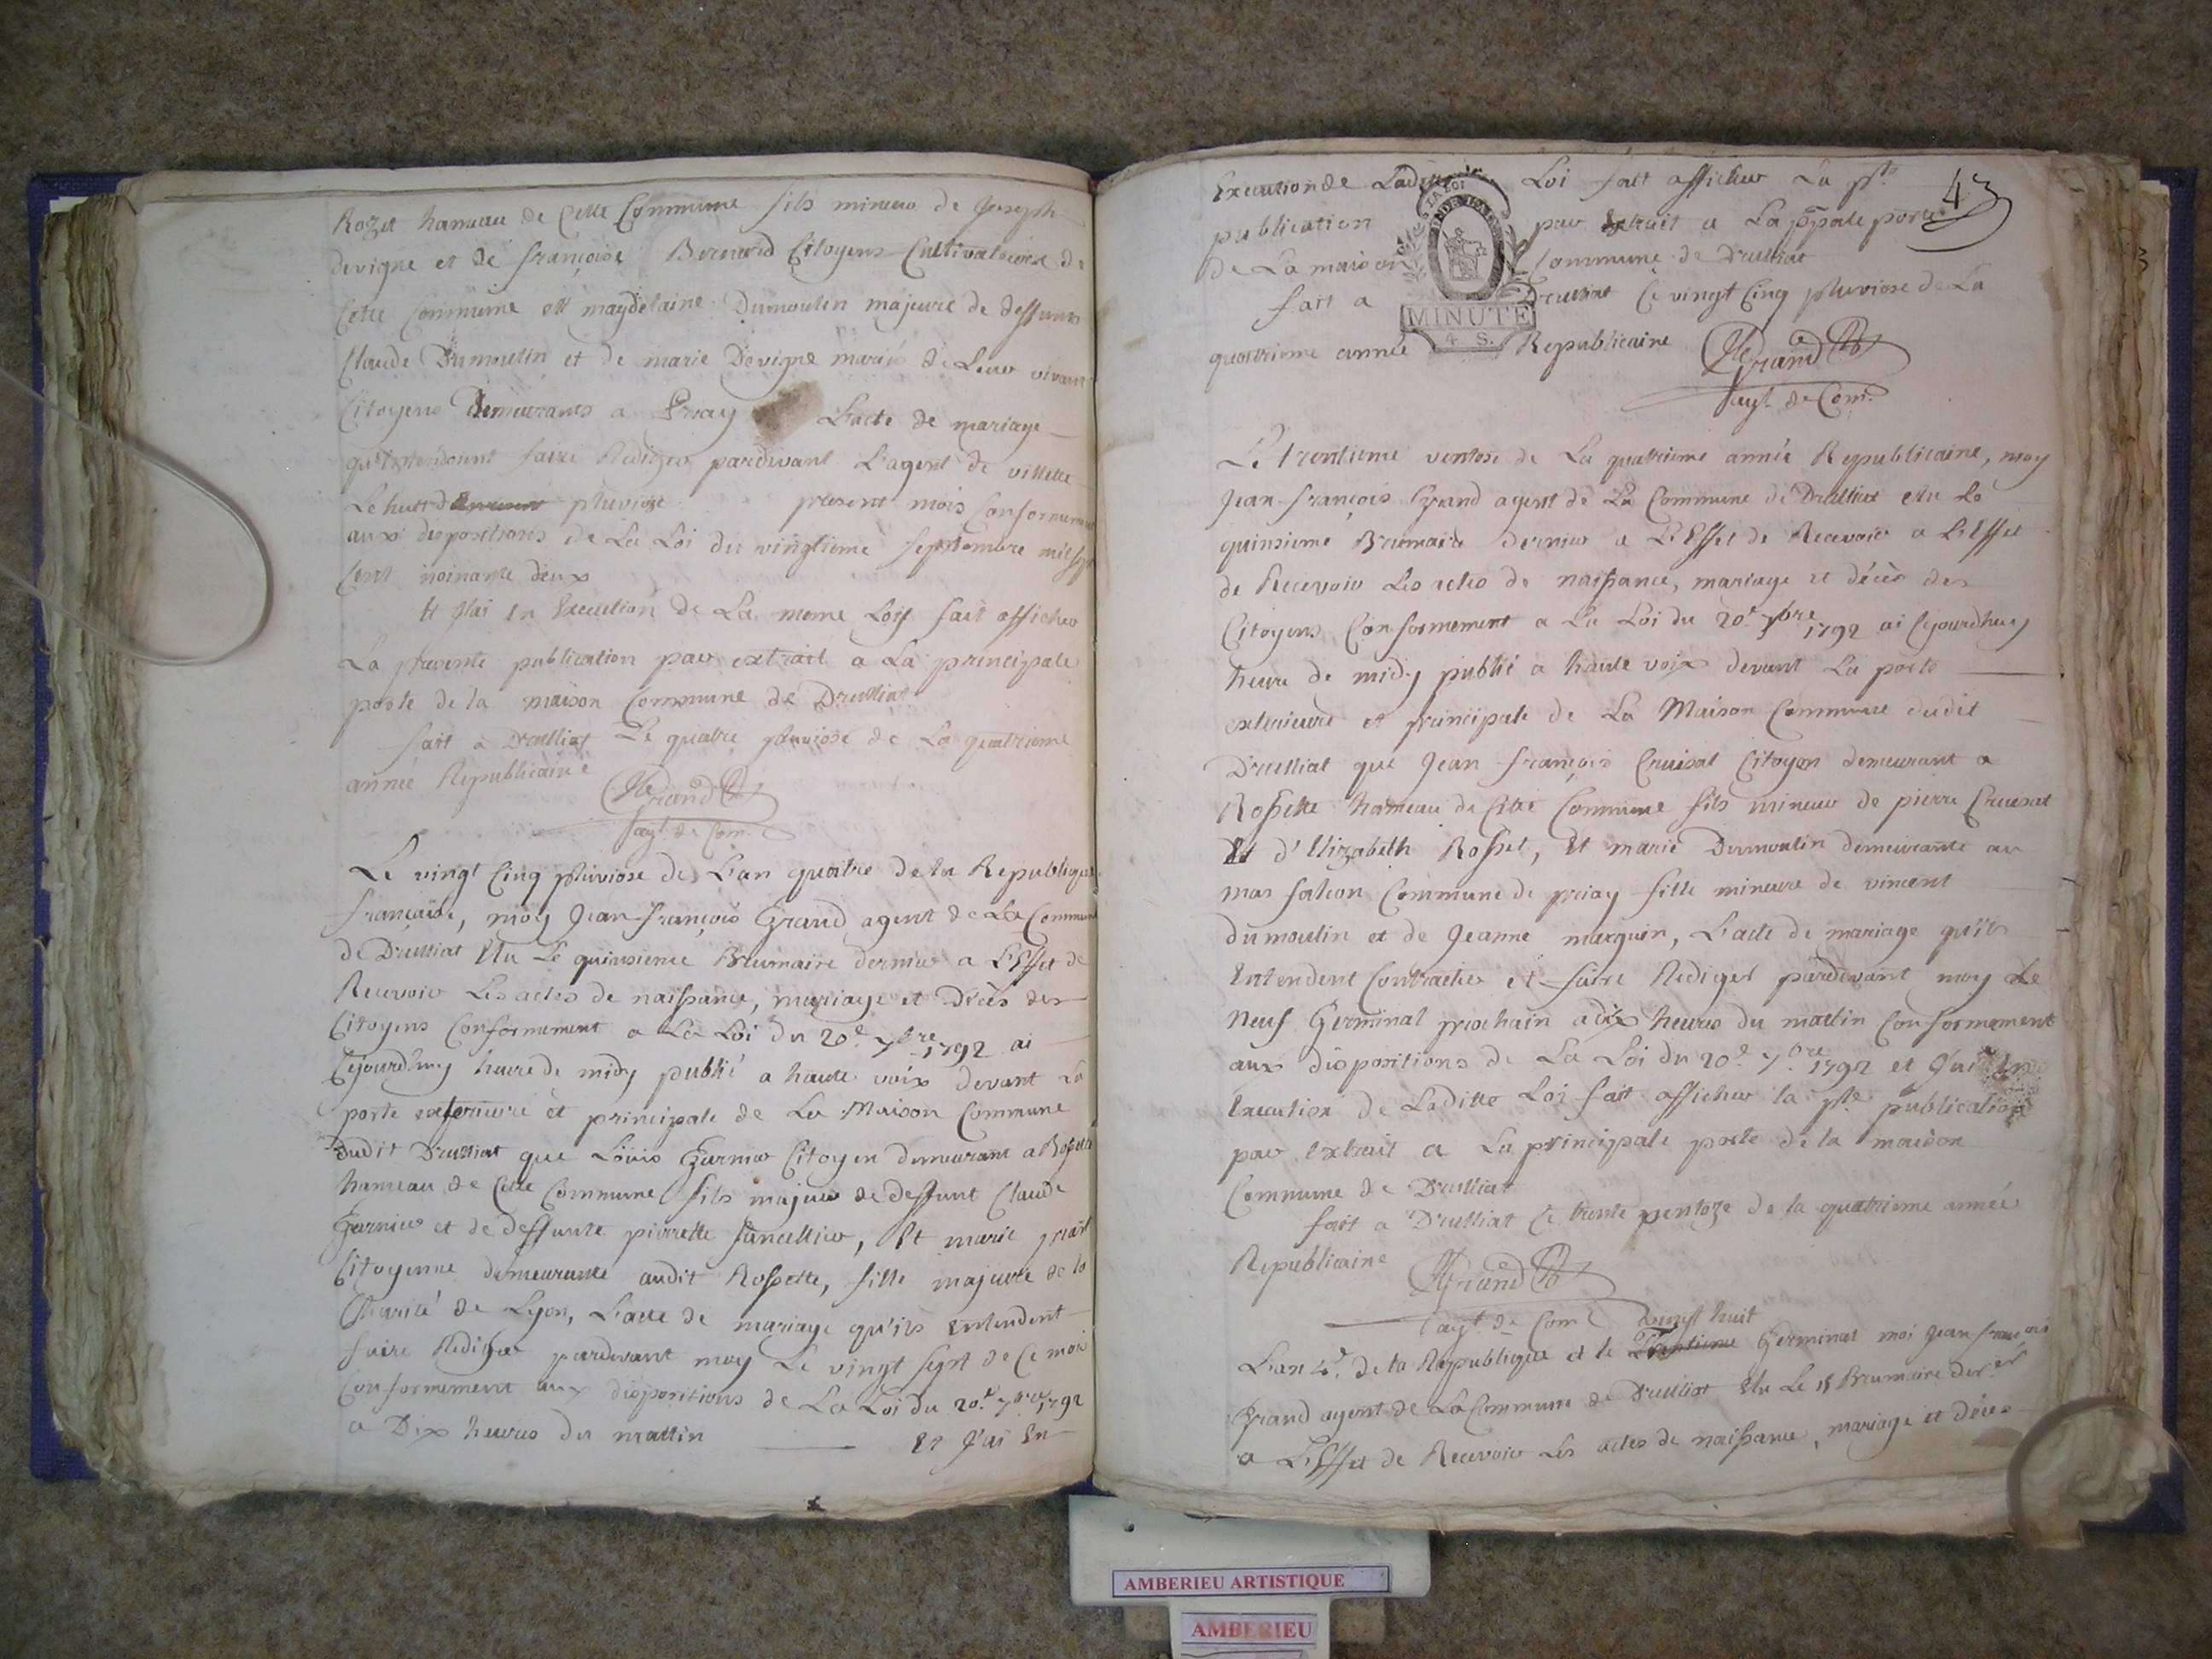 Rozet hameau de Cette Commune fils mineur de Joseph
devigne et de françoise Bernard Citoyens Cultivateurs de
Cette Commune et magdelaine Dumoulin majeure de deffunts
Claude Dumoulin et de marie Devigne mariés de Leur vivant
Citoyens demeurants a Priay L'acte de mariage
qu'ils entendent faire Rediger pardevant L'agent de villette
Le huit pluviose present mois Conformement
aux dispositions de La Loi du vingtieme septembre mil sept
Cent noinante deux
Et J'ai en Execution de La meme Loix fait afficher
La presente publication par extrait a La principale
porte de la maison Commune de Druilliat
fait a Druilliat Le quatre pluviose de La quatrieme
année Republicaine
Grand
agt. de Com.
Le vingt Cinq pluviose de L'an quatre de la Republique
française, moy Jean-françois Grand agent de La Commune
de Druilliat Elu Le quinsieme Brumaire dernier a L'Effet de
Recevoir Les actes de naissance, mariage et Décès des
Citoyens Conformement a La Loi du 20e. 7bre 1792 ai
Cejourd'huy heure de midy publié a haute voix devant La
porte exterieure et principale de La Maison Commune
dudit Druilliat que Louis Garnier Citoyen demeurant a Rossette
hameau de Cette Commune fils majeur de deffunt Claude
Garnier et de deffunte pierrette, Et marie
Citoyenne demeurante audit Rossette, fille majeure de la
Charité de Lyon, L'acte de mariage qu'ils Entendent
faire Rediger pardevant moy Le vingt sept de Ce mois
Conformement aux dispositions de La Loi du 20e. 7bre 1792
a Dix heures du mattin Et J'ai En
43
Execution de Ladite Loi fait afficher La pte
publication par Extrait a La ppale porte
de La maison Commune de Druilliat
fait a Druilliat Ce vingt Cinq pluviose de La
quatrieme année Republicaine
LA LOI
MINUTE
4 S.
Grand
agt. de Com.
Le trentieme ventose de La quatrieme année Republicaine, moy
Jean-françois Grand agent de La Commune de Druilliat elu Le
quinsieme Brumaire dernier a L'Effet de Recevoir a L'Effet
de Recevoir Les actes de naissance, mariage et décès des
Citoyens Conformement a La Loi du 20e 7bre 1792 ai Cejourdhuy
heure de midy publié a haute voix devant La porte
exterieure et principale de La Maison Commune dudit
Druilliat que Jean françois Cruisat Citoyen demeurant a
Rossette hameau de Cette Commune fils mineur de pierre Cruisat
Et d'Elizabeth Rosset, Et marie Dumoulin demeurante au
mas falcon Commune de priay fille mineure de vincent
dumoulin et de Jeanne marquin, L'acte de mariage qu'ils
Entendent Contracter et faire Rediger pardevant moy Le
Neuf Germinal prochain a dix heures du mattin Conformement
aux dispositions de La Loi du 20e. 7bre 1792 et J'ai En
Execution de Laditte Loi fait afficher la pte publication
par extrait a La principale porte de la maison
Commune de Druilliat
fait a Druilliat Ce trente ventoze de la quatrieme année
Republicaine
Grand
agt de Com
vingt huit
L'an 4e. de la Republique et le Trentieme Germinal moi Jean françois
Grand agent de La Commune de Druilliat Elu Le 15 Brumaire der.er
a L'Effet de Recevoir Les actes de naissance, mariage et décès
AMBERIEU ARTISTIQUE
AMBERIEU